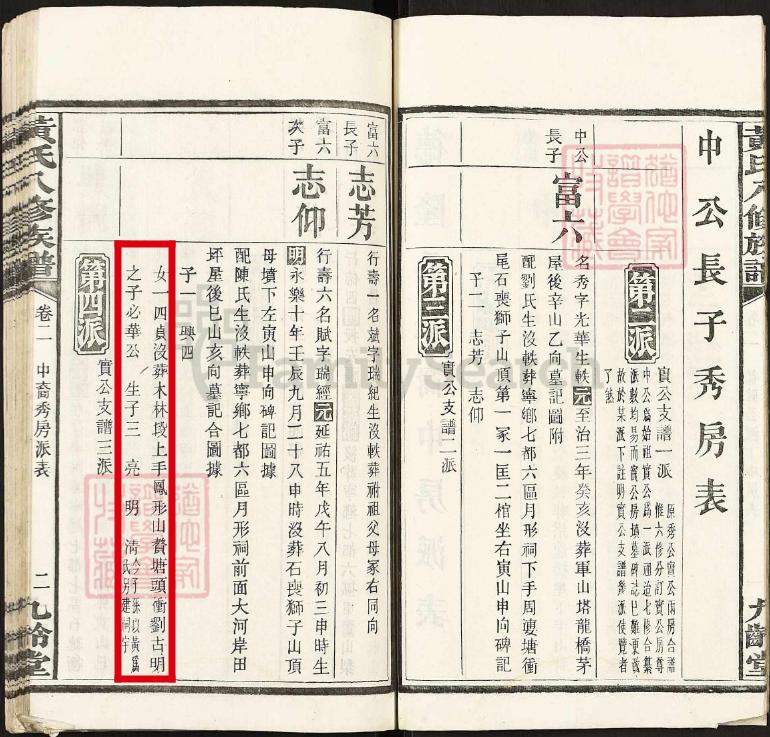 黃氏八修族譜
九齡堂
中公長子秀房表
第二派
實公支譜一派
原秀公實公兩房合譜
惟六修分訂實公房尊
中公為始祖實公為一派祖迨七修合纂
派數均易而實公房墳墓碑誌已難更改
故於某派下註明實公支譜幾派使覽者
了然
中公
長子
富六
名秀字光華生軼元至治三年癸亥沒葬軍山塔龍橋茅
屋後辛山乙向墓記圖附
配劉氏生沒軼葬寧鄉七都六區月形祠下手周婆塘衝
尾石喪獅子山頂第一冢一匡二棺坐右寅山申向碑記
子二 志芳 志仰
第三派
實公支譜二派
富六
長子
志芳
行壽一名斌字瑞紀生沒軼葬祔祖父母冢右同向
富六
次子
志仰
行壽六名賦字瑞經元延祐五年戊午八月初三申時生
明永樂十年壬辰九月二十八申時沒葬石喪獅子山頂
母墳下左寅山申向碑記圖據
配陳氏生沒軼葬寧鄉七都六區月形祠前面大河岸田
坪屋後巳山亥向墓記合圖據
子一 興四
女一四貞沒葬木林段上手鳳形山贅塘頭衝劉古明
之子必華公 生子三 亮 明 清 今子孫以黃為
氏另建祠宇
第四派
實公支譜三派
黃氏八修族譜
卷二 中裔秀房派表
二
九齡堂
FamilySearch